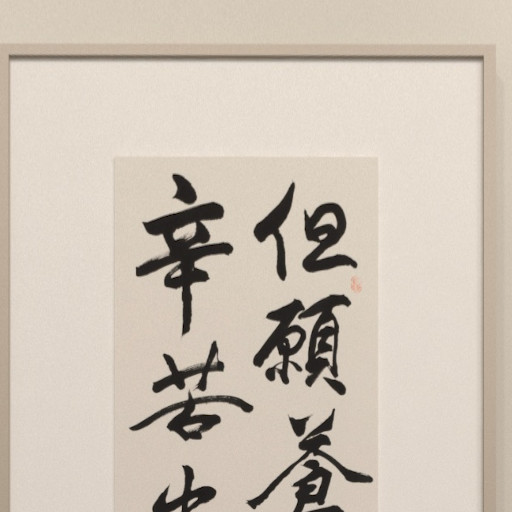 但願蒼
辛苦出